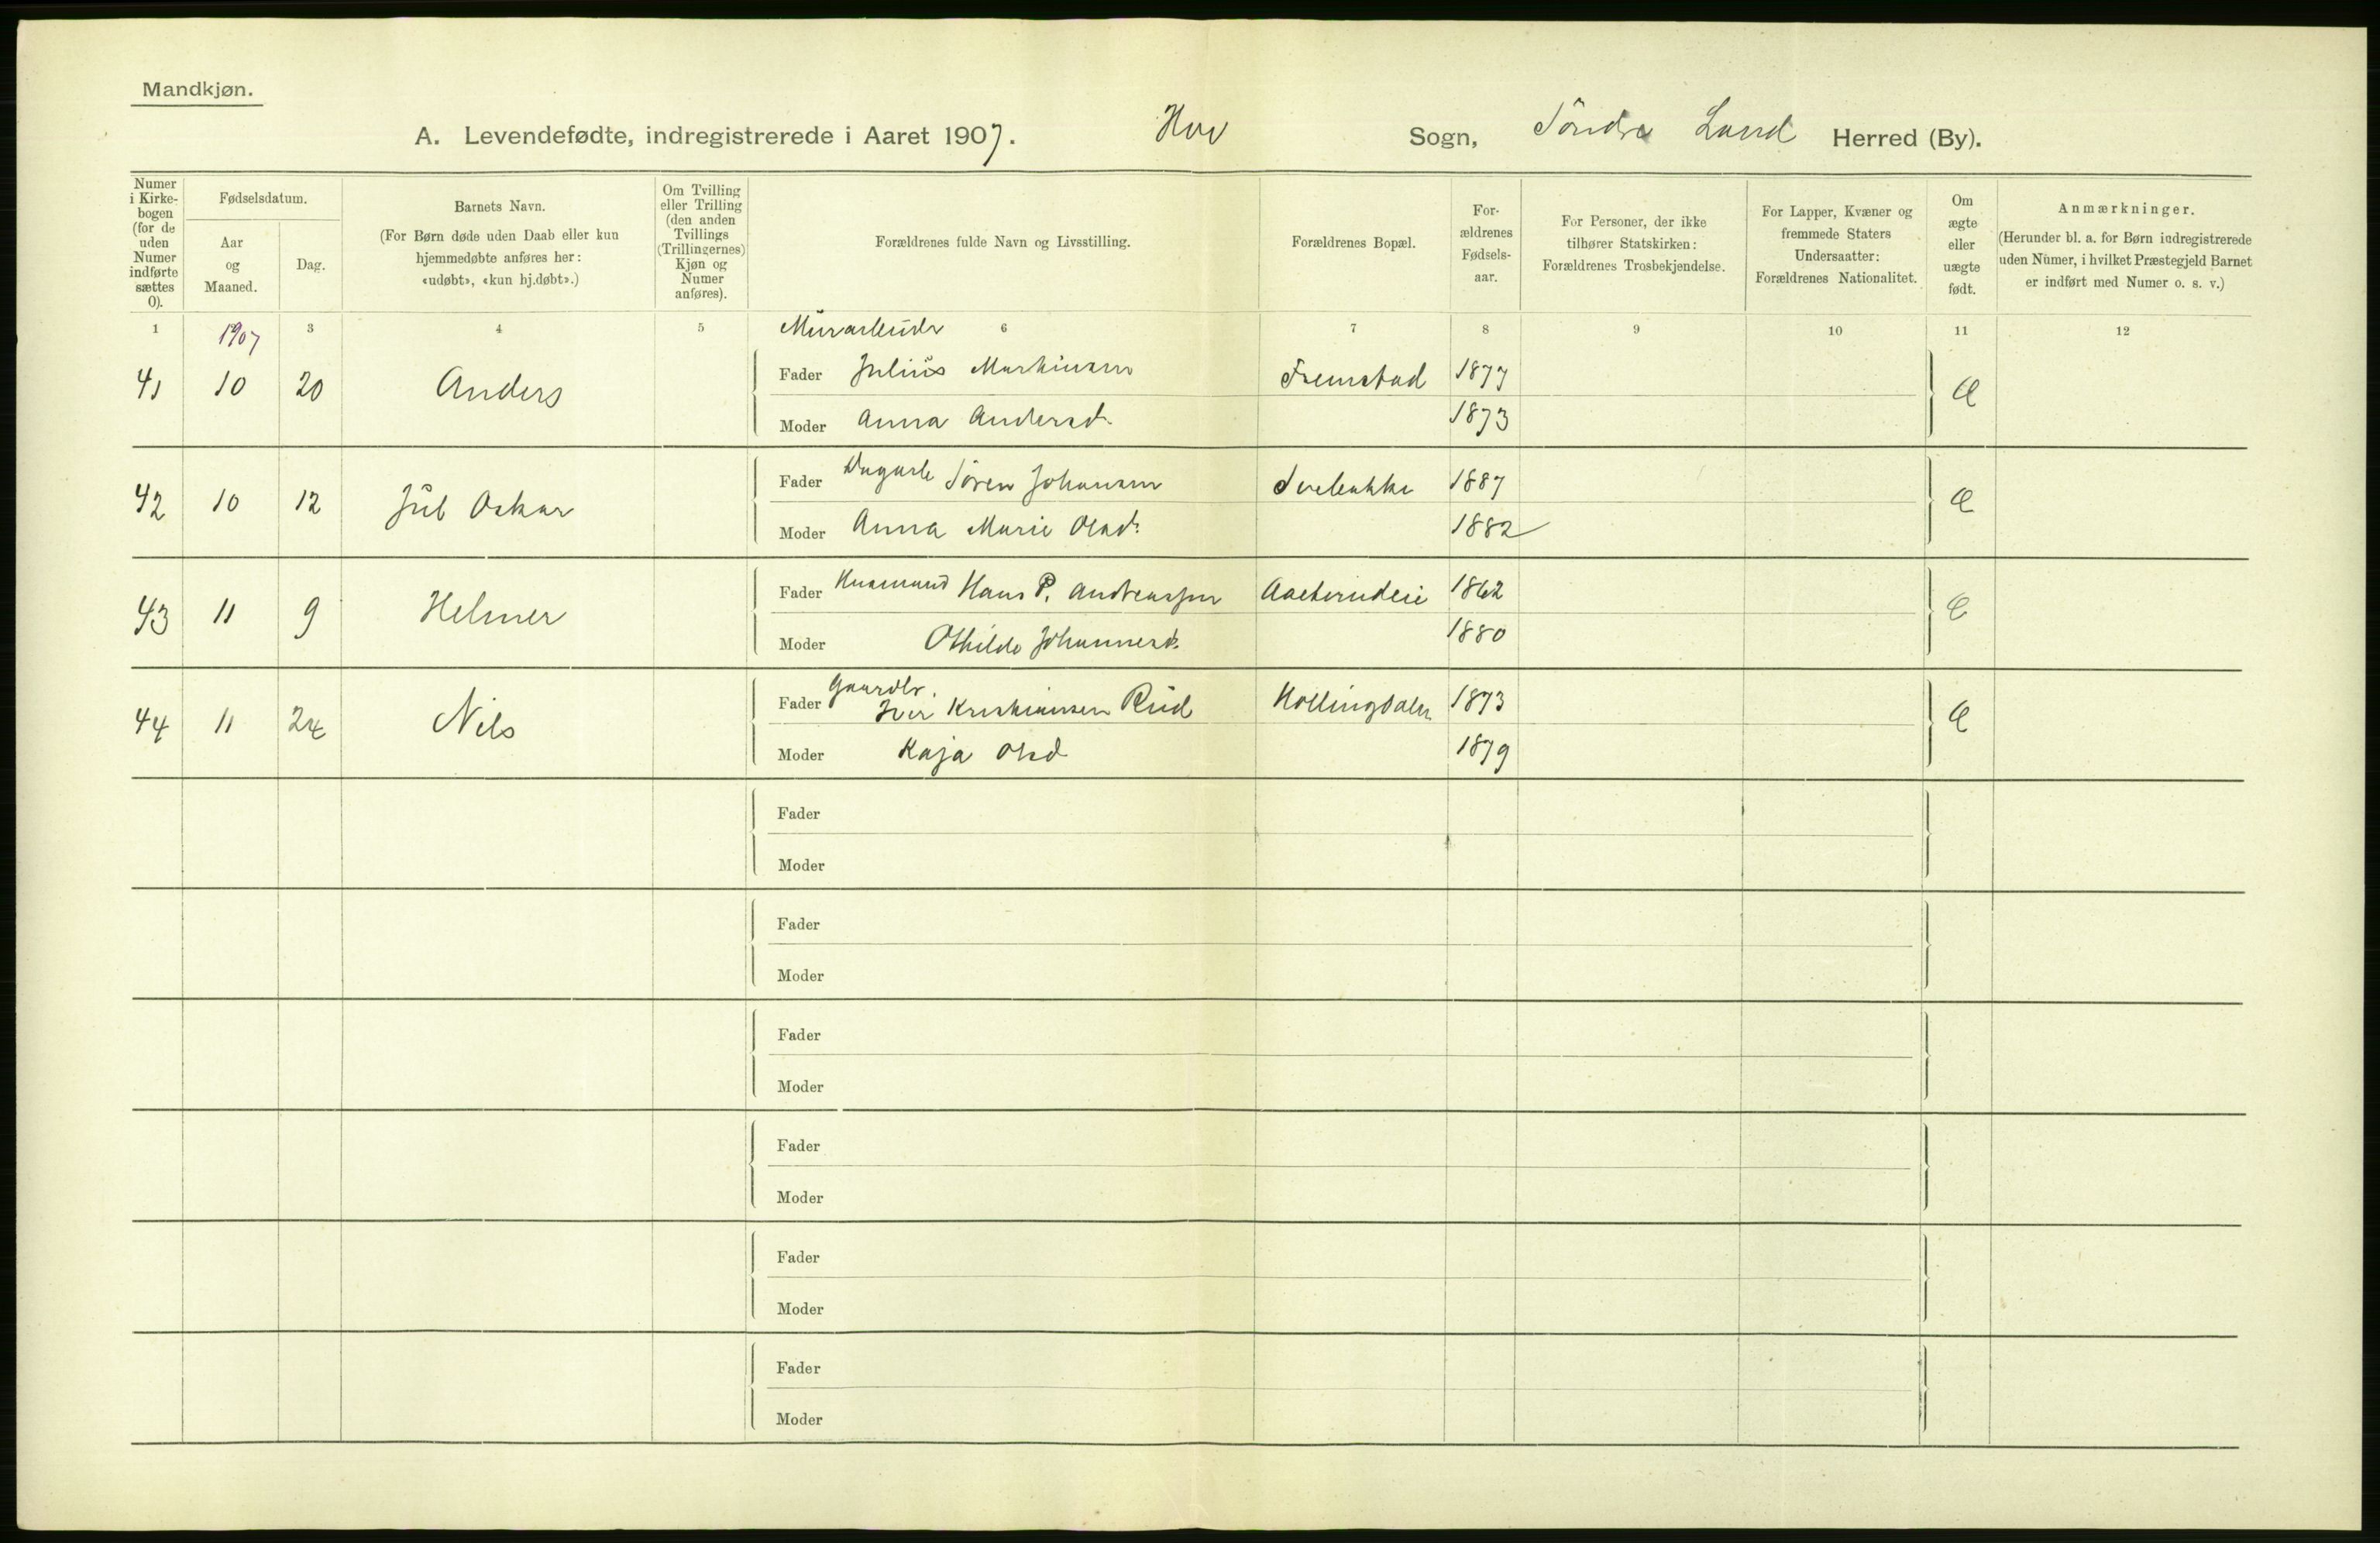 Mandkjøn.
A. Levendefødte, indregistrerede i Aaret 1907. Hov Sogn, Söndre Land Herred (By).
Numer i Kirkebogen (for de uden Numer indførte sættes 0).
Fødselsdatum.
Aar og Maaned.
Dag.
Barnets Navn.
(For Børn døde uden Daab eller kun hjemmedøbte anføres her: «udøbt», «kun hj.døbt».)
Om Tvilling eller Trilling (den anden Tvillings (Trillingernes) Kjøn og Numer anføres).
Forældrenes fulde Navn og Livsstilling.
Forældrenes Bopæl.
Forældrenes Fødselsaar.
For Personer, der ikke tilhører Statskirken: Forældrenes Trosbekjendelse.
For Lapper, Kvæner og fremmede Staters Undersaatter: Forældrenes Nationalitet.
Om ægte eller uægte født.
Anmærkninger.
(Herunder bl. a. for Børn indregistrerede uden Numer, i hvilket Præstegjeld Barnet er indført med Numer o. s. v.)
1 1907 3 4 5 6 7 8 9 10 11 12
Murarbeider
41 10 20 Anders Fader Julius Martinsen Fremstad 1877 Æ
Moder Anna Andersd. 1873
42 10 12 Jul Oskar Fader Dagarb Sören Johansen 1887 Æ
Moder Anna Marie Olsd. 1882
43 11 9 Helmer Fader Husmand Hans P. Andreassen 1862 Æ
Moder Othilde Johannesd. 1880
44 11 24 Nils Fader Gaardbr. Iver Kristiansen Rud Hollingdalen 1873 Æ
Moder Kaja Olsd 1879
Fader
Moder
Fader
Moder
Fader
Moder
Fader
Moder
Fader
Moder
Fader
Moder